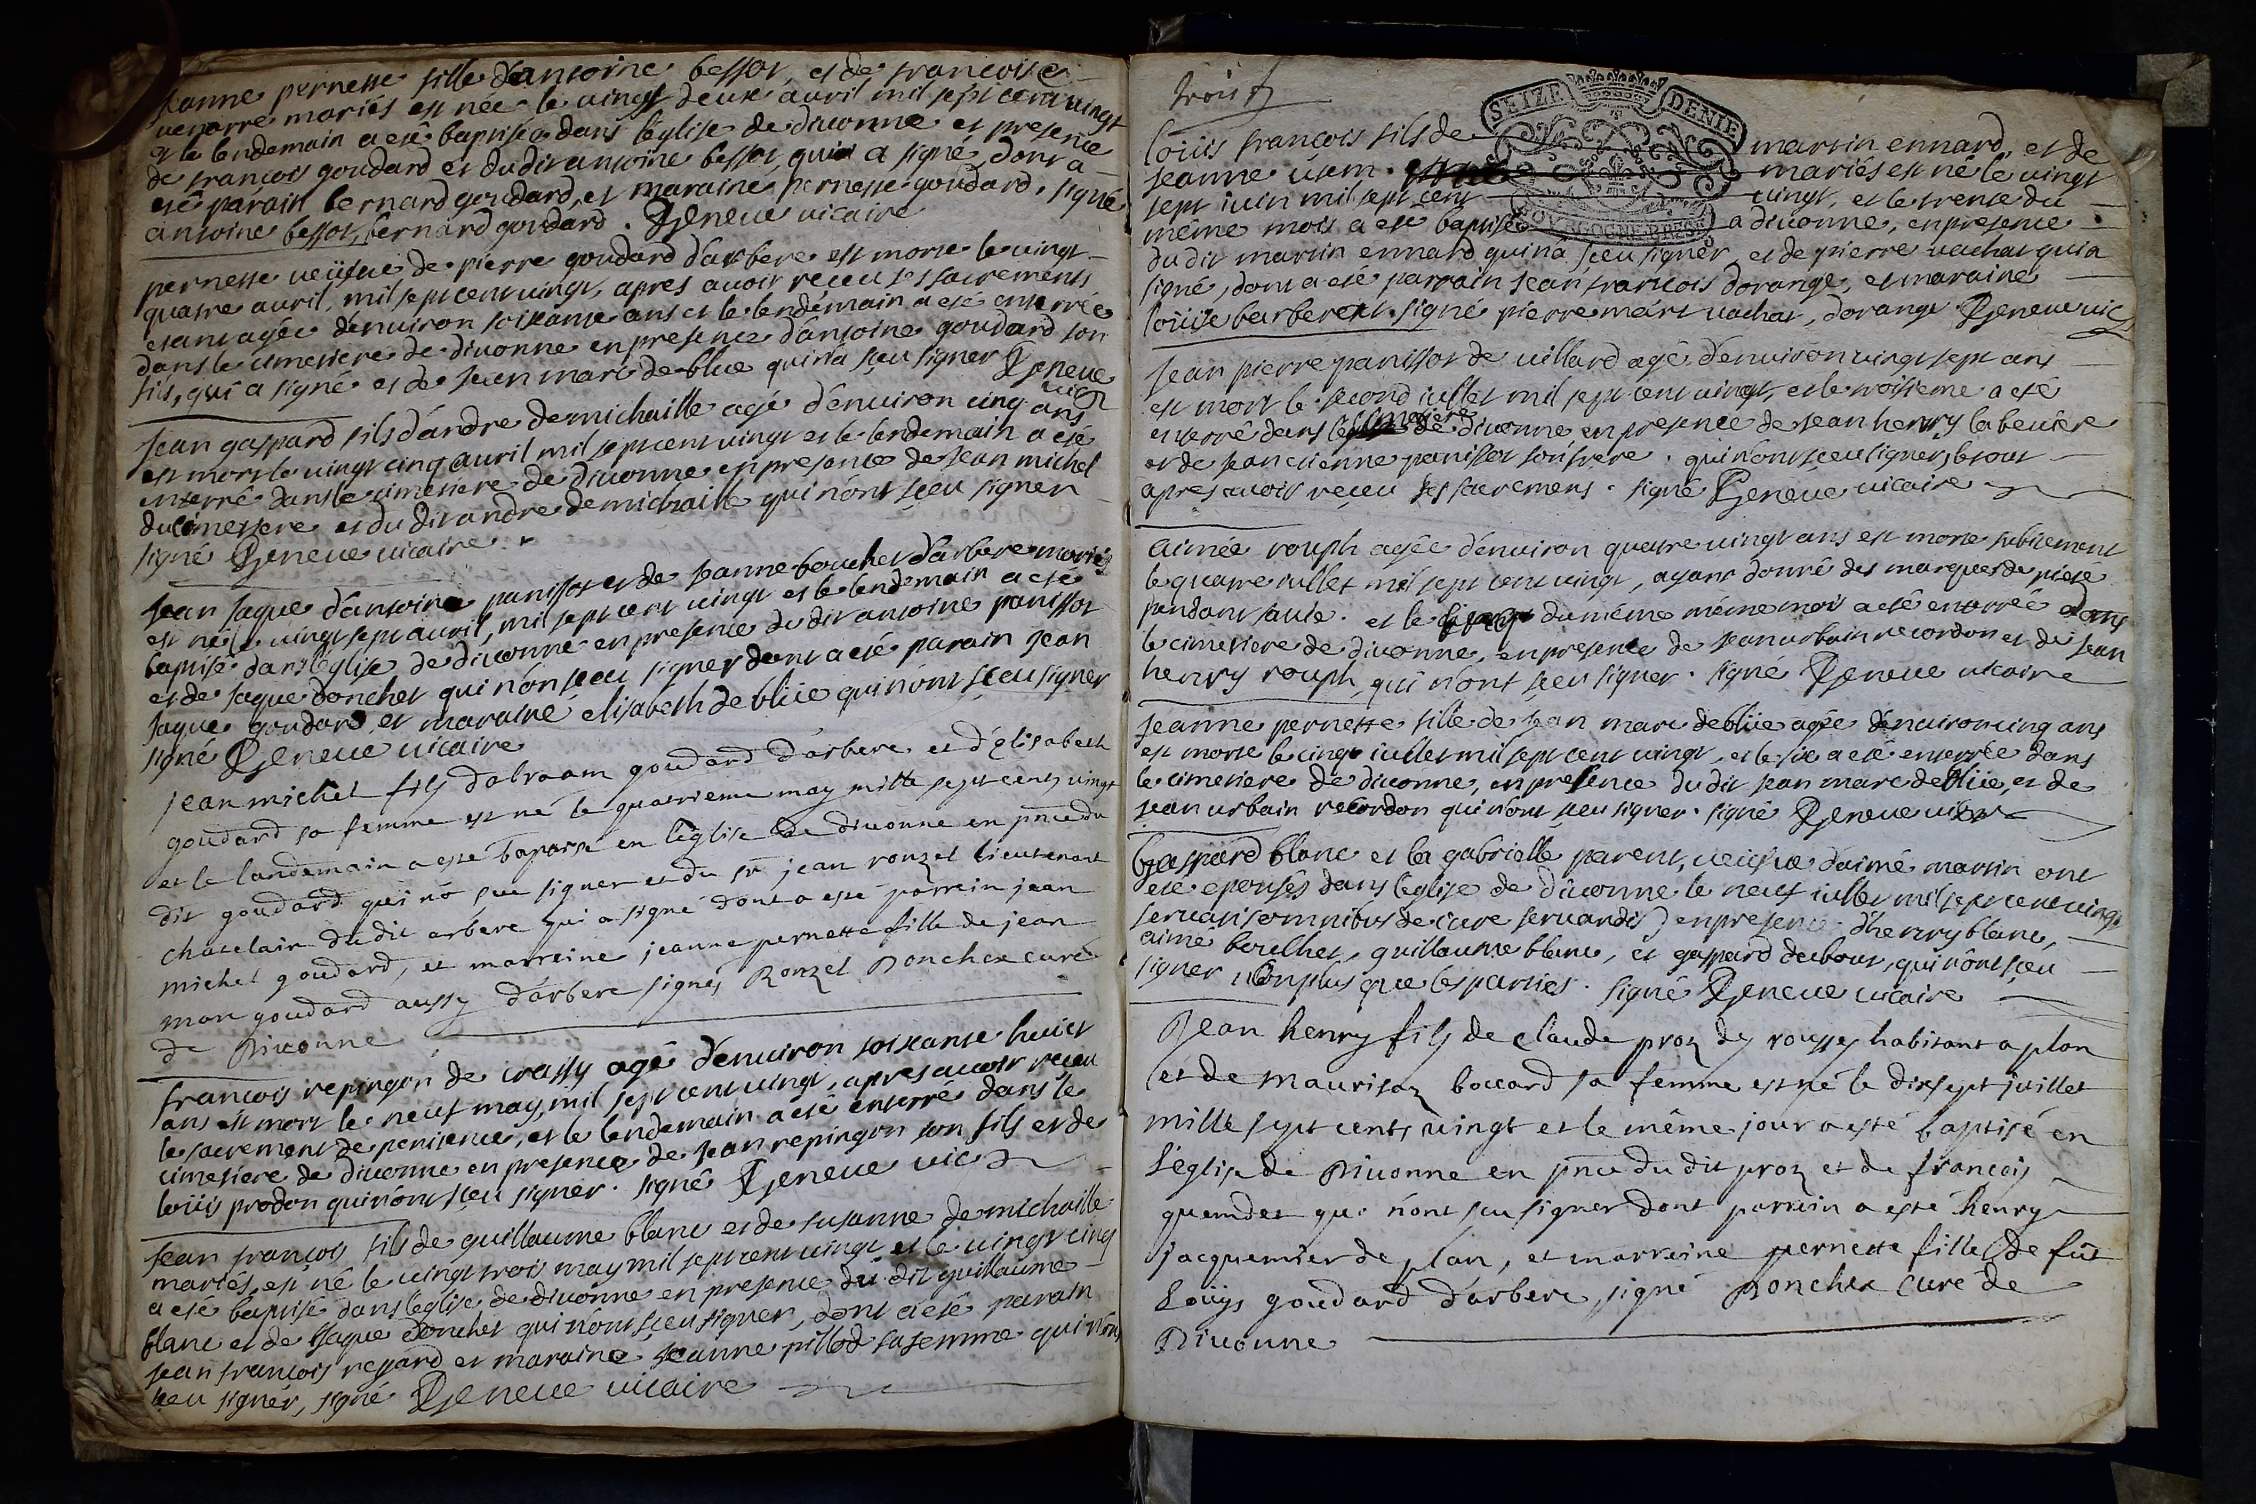 Jeanne pernette fille d'antoine bessot, et de francoise
uenarre mariés est née le uingt deux auril mil sept cent uingt
et le lendemain a eté baptisée dans l'eglise de diuonne et presence
de francois goudard et du dit antoine bessot, qui a signé, dont a
eté parain bernard goudard, et maraine pernette goudard. signé
antoine bessot, bernard goudard. Geneue uicaire
pernette ueüfue de pierre goudard d'arbere est morte le uingt
quatre auril, mil sept cent uingt, apres auoir receu ses sacrements
etant agée d'enuiron soixante ans et le lendemain a eté enterrée
dans le cimetiere de diuonne en presence d'antoine goudard son
fils, qui a signé et de Jean marc de blue qui n'a sçeu signer Geneue
uic
Jean gaspard fils d'andre demichaille agé d'enuiron cinq ans
est mort le uingt cinq auril mil sept cent uingt et le lendemain a eté
enterré dans le cimetiere de diuonne en presence de Jean michel
ducimetiere et du dit andre demichaille qui n'ont sçeu signer
signé Geneue uicaire
Jean Jaque d'antoine panissot et de Jeanne bouchet d'arbere mariés
est né le uingt sept auril, mil sept cent uingt et le lendemain a eté
baptisé dans l'eglise de diuonne en presence du dit antoine panissot
et de Jaque donchet qui n'on sceu signer dont a eté parain Jean
Jaque goudard et maraine elisabeth de bliie qui n'ont sçeu signer
signé Geneue uicaire
Jean michel fils d'abraam goudard d'arbere et d'Elisabeth
goudard sa femme est né le quatrieme may mille sept cents uingt
et le landemain a esté baptisé en l'eglise de diuonne en pnce du
dit goudard qui n'a sçu signer et du sr jean rouzet lieutenant
chatelain du dit arbere qui a signé dont a esté parrein jean
michel goudard, et marreine jeanne pernette fille de jean
marc goudard aussy d'arbere signés Rouzet Ponchex curé
de Diuonne
francois repingon de crassy agé d'enuiron soixante huict
ans est mort le neuf may, mil sept cent uingt, apres auoir receu
le sacrement de penitence, et le lendemain a eté enterré dans le
cimetiere de diuonne en presence de Jean repingon son fils et de
loüis prodon qui n'ont sçeu signer. signé Geneue uic
Jean francois fils de guillaume blanc et de susanne de michaille
mariés, est né le uingt trois may mil sept cent uingt et le uingt cinq
a eté baptisé dans l'eglise de diuonne en presence du dit guillaume
blanc et de Jaque donchet qui n'ont sçeu signer, dont a eté parain
Jean francois regard et maraine Jeanne pillod sa femme qui n'ont
sçeu signer, signé Geneue uicaire
trois
SEIZE DENIE
BOVRGOGNE BRESSE
loüis françois fils de martin ennard, et de
Jeanne mariés est né le uingt
sept iuin mil sept cent uingt, et le trente du
même mois a eté baptisé a diuonne, en presence
du dit martin ennard qui n'a sçeu signer, et de pierre uachat qui a
signé, dont a eté parrain Jean françois dorange, et maraine
loüise barberat. signé pierre marc uachat, dorange Geneue uic
Jean pierre panissot de uillard agé d'enuiron uingt sept ans
est mort le second iullet mil sept cent uingt, et le troisieme a eté
enterré dans le cimetiere de diuonne en presence de Jean henry la beuiere
et de Jean etienne panissot son frere. qui n'ont sçeu signer, tout
apres auoir reçeu ses sacremens. signé Geneue uicaire
aimée rouph agée d'enuiron quatre uingt ans est morte subitement
le quatre iullet mil sept cent uingt, ayant donné des marques de pieté
pendant sa uie. et le du même même mois a eté enterrée dans
le cimetiere de diuonne, en presence de Jean urbain recordon et de Jean
henry rouph qui n'ont sçeu signer. signé Geneue uicaire
Jeanne pernette fille de Jean marc de bliie agée d'enuiron cinq ans
est morte le cinq iullet mil sept cent uingt, et le six a eté enterrée dans
le cimetiere de diuonne, en presence du dit Jean marc de bliie, et de
Jean urbain recordon qui n'ont sçeu signer. signé Geneue uic
gaspard blanc et la gabrielle parent, ueüfue d'aimé martin ont
eté epousés dans l'eglise de diuonne le neuf iullet mil sept cent uingt
seruatis omnibus de iure seruandis) en presence d'henry blanc,
aimé boulhet, guillaume blanc, et gaspard dubout, qui n'ont sçeu
signer non plus que les parties. signé Geneue uicaire
Jean henry fils de claude proz des rousses habitant a plan
et de maurisaz boccard sa femme est né le dix sept juillet
mille sept cents uingt et le même jour a esté baptisé en
l'eglise de Diuonne en pnce du dit proz et de françois
quemdet qui n'ont sçu signer dont parrein a esté henry
jacquemier de plan, et marreine pernette fille de fût
Loüys goudard d'arbere signé Ponchex curé de
Diuonne